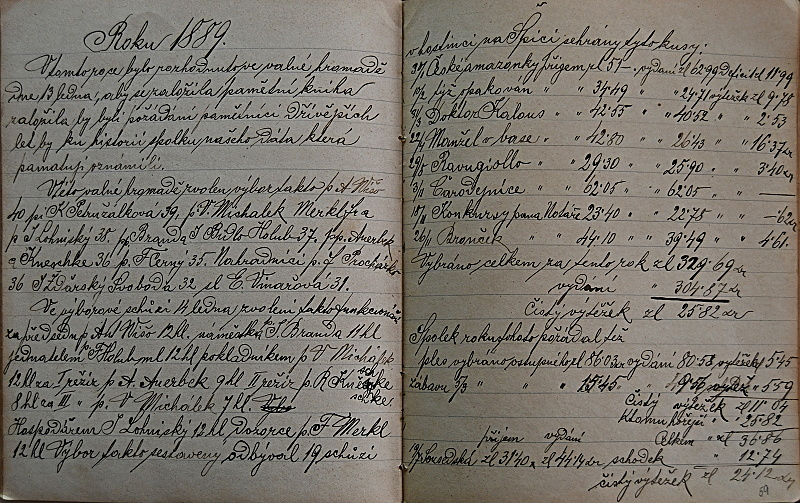 Roku 1889.
V tomto roce bylo rozhodnuto ve valné hromadě
dne 13 ledna, aby se založila pamětní kniha
založila by byli požádáni pamětníci Dřívějších
let by ku historii spolku našeho dáta která
pamatují oznámili.
V této valné hromadě zvolen výbor takto p. A Wišo
40 pí K Petružálková 39. p. V. Michalek Merkl Fra
p J Lohniský 38. p. Branda J Holub 37. pp. Auerbek
a Kneschke 36 p. F Černý 35. Nahradníci p. J Procházka
36 J Žďárský Svoboda 32 sl E. Vinařová 31.
Ve výborové schůzi 14 ledna zvoleni takto funkcionáři
za předsedu p Ant Wišo 12 hl. náměstka J. Branda 11 hl
jednatelem p F Holub ml 12 hl pokladníkem p V Michálek
12 hl za I režir p A. Auerbek 9 hl II režir p. R. Kneschke
8 hl za III " p. V Michálek 7 hl.
Hospodářem J Lohniský 12 hl dozorce p. F Merkl
12 hl Výbor takto sestavený odbýval 19 schůzí
v hostinci na Špici sehrány tyto kusy.
České amazonky příjem zl 51 – vydání zl 62.99 Deficit zl 11.99
týž opakován " " 34.49 " 24.71 výtěžek zl 9.78
Doktor Kalous " " 42.55 " 40.52 " 2.53
Manžel v base " " 42.80 " 26.43 " 16.37 kr
Ravugiollo " " 29.30 " 25.90 " 3.40 kr
Čarodejnice " " 62.05 " 62.05 " —
Konkursy pana Notáře 23.40 " 22.78 " – 62 kr
Brouček " " 44.10 " 39.49 " 4.61.
Vybráno celkem za tento rok zl 329.69 kr
vydání " 304.87 kr
Čistý výtěžek zl 25.82 kr
Spolek roku tohoto požádal též
ples vybráno vstupného zl 86.03 kr vydání 80.58 výtěžek 5.45
zábavu 3/3 " " " 15.45 výtěž " 5.59
Čistý výtěžek zl 11.04
k tomu hořejší " 25.82
Celkem " zl 36.86
příjem vydání
Sousedská zl 31.40 zl 44.14 kr schodek " 12.74
čistý výtěžek zl 24.12 kr
59